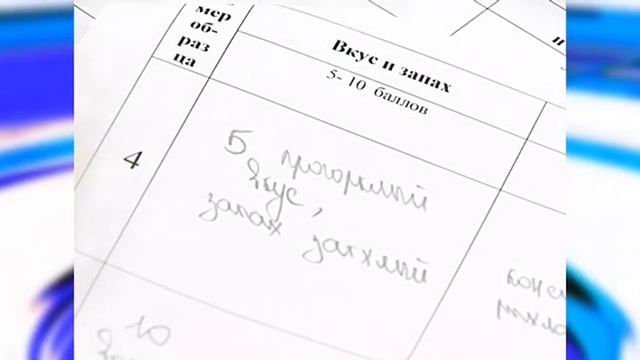 мер
об-
раз
ца
Вкус и запах
5-10 баллов
4
5 прогорклый
вкус,
запах затхлый
10